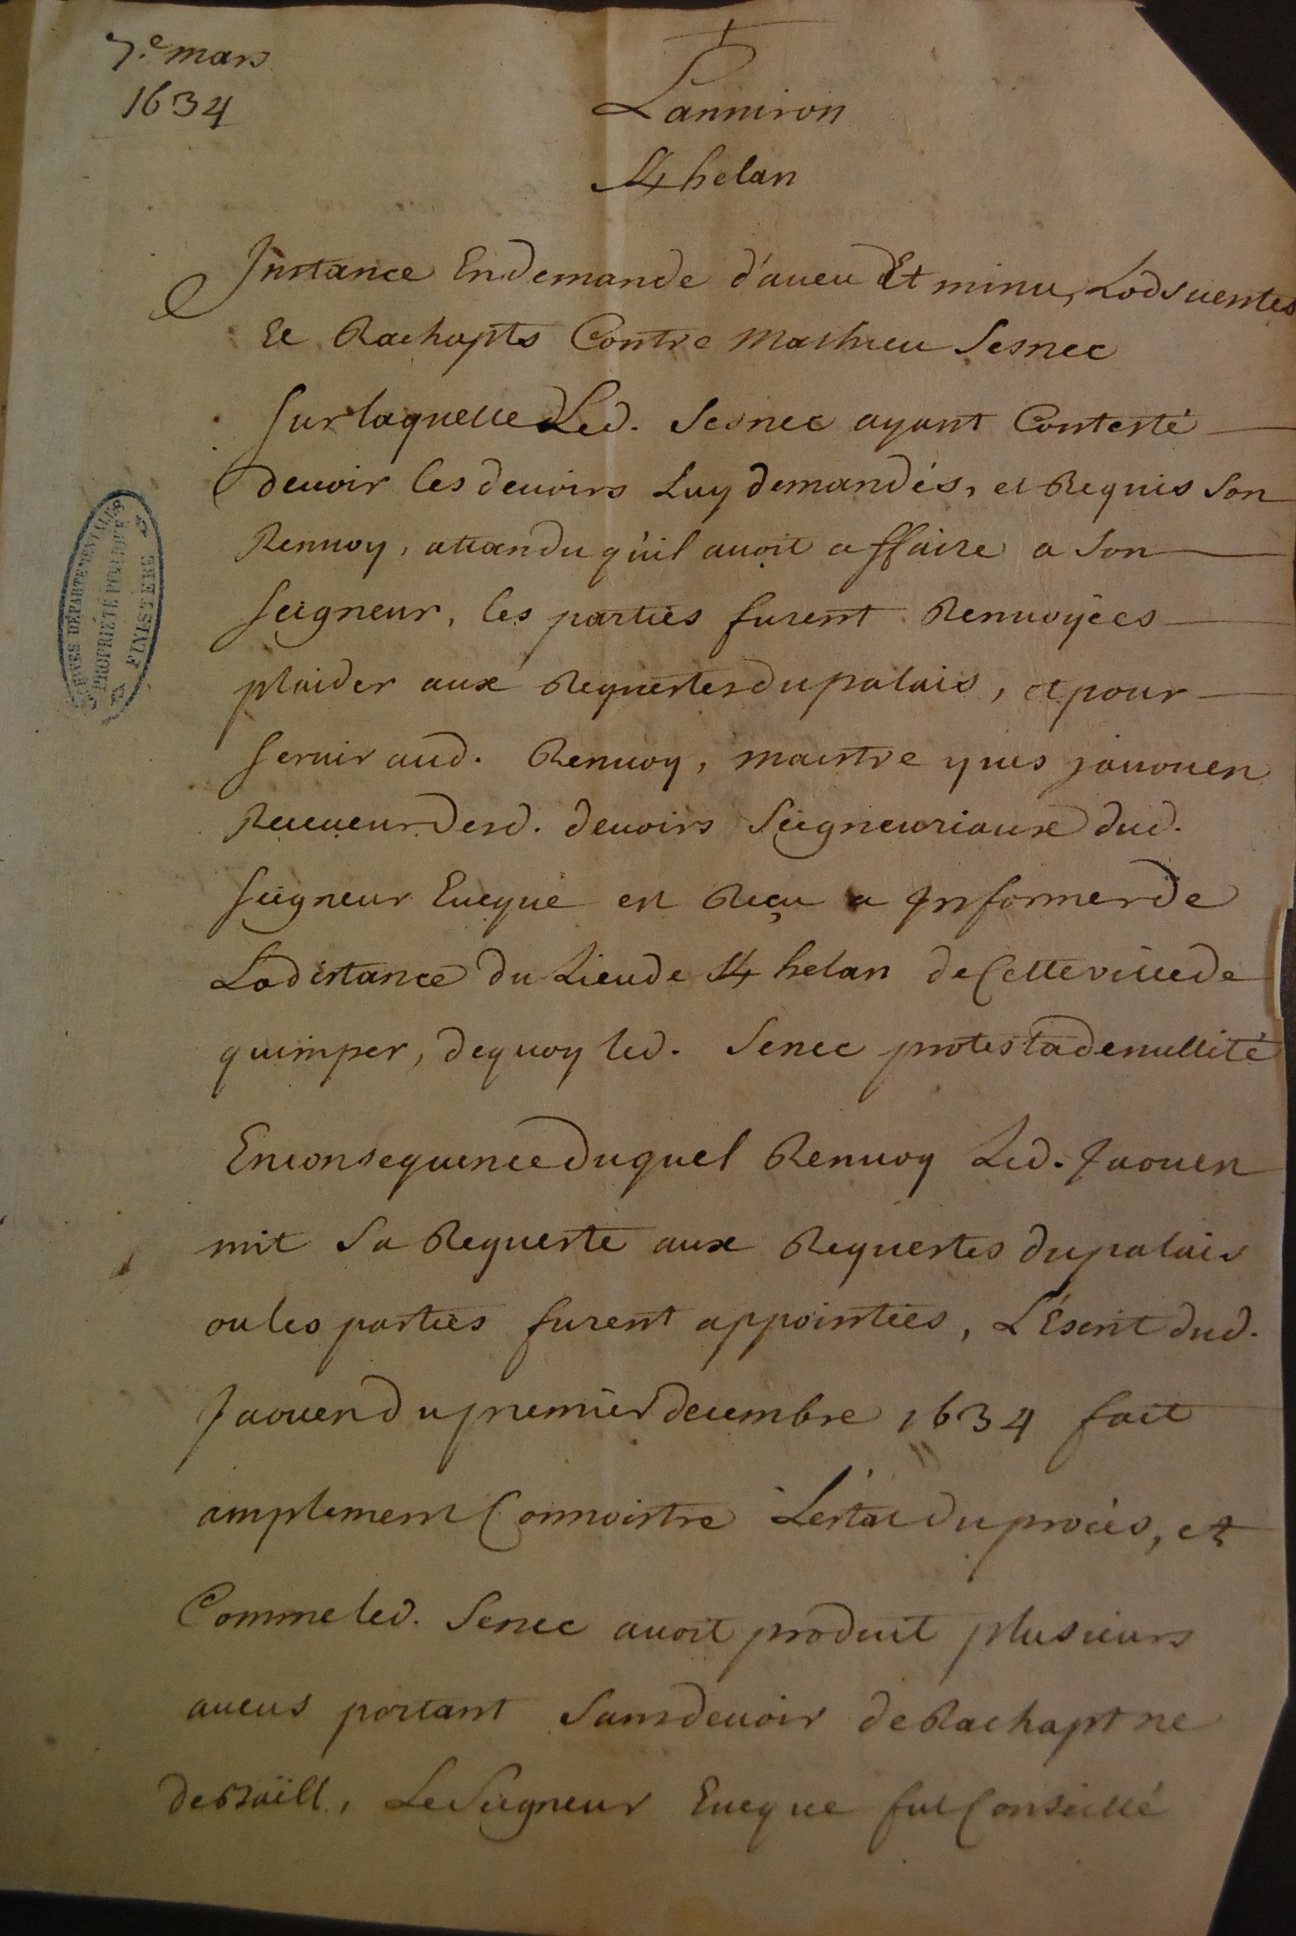 7.e mars
1634
Lanniron
K/helan
Instance En demande d'aueu Et minu, Lods uentes
Et Rachapts Contre Mathieu Sesnec
Sur laquelle Led. Sesnec ayant Contesté
deuoir les deuoirs Luy demandés, et Requis Son
Renuoy, attandu qu'il auoit affaire a Son
Seigneur, les parties furent Renuoyées
plaider aux Requestes du palais, et pour
Seruir aud. Renuoy, maistre yues jaouen
Receueur desd. deuoirs Seigneuriaux dud.
Seigneur Eueque est Reçu a Informer de
La distance du Lieu de K/helan de Cette ville de
quimper, de quoy led. Senec protesta de nullité
En consequence du quel Renuoy Led. Jaouen
mit Sa Requeste aux Requestes du palais
ou les parties furent appointées, L'Escrit dud.
Jaouen du premier decembre 1634 fait
amplement Connoistre L'estat du procès, et
Comme led. Senec auoit produit plusieurs
aueus portant Sans deuoir de Rachapt ne
de Bꝛaill, Le Seigneur Eueque fut Conseillé
ARCHIVES DÉPARTEMENTALES
PROPRIÉTÉ PUBLIQUE
FINISTERE